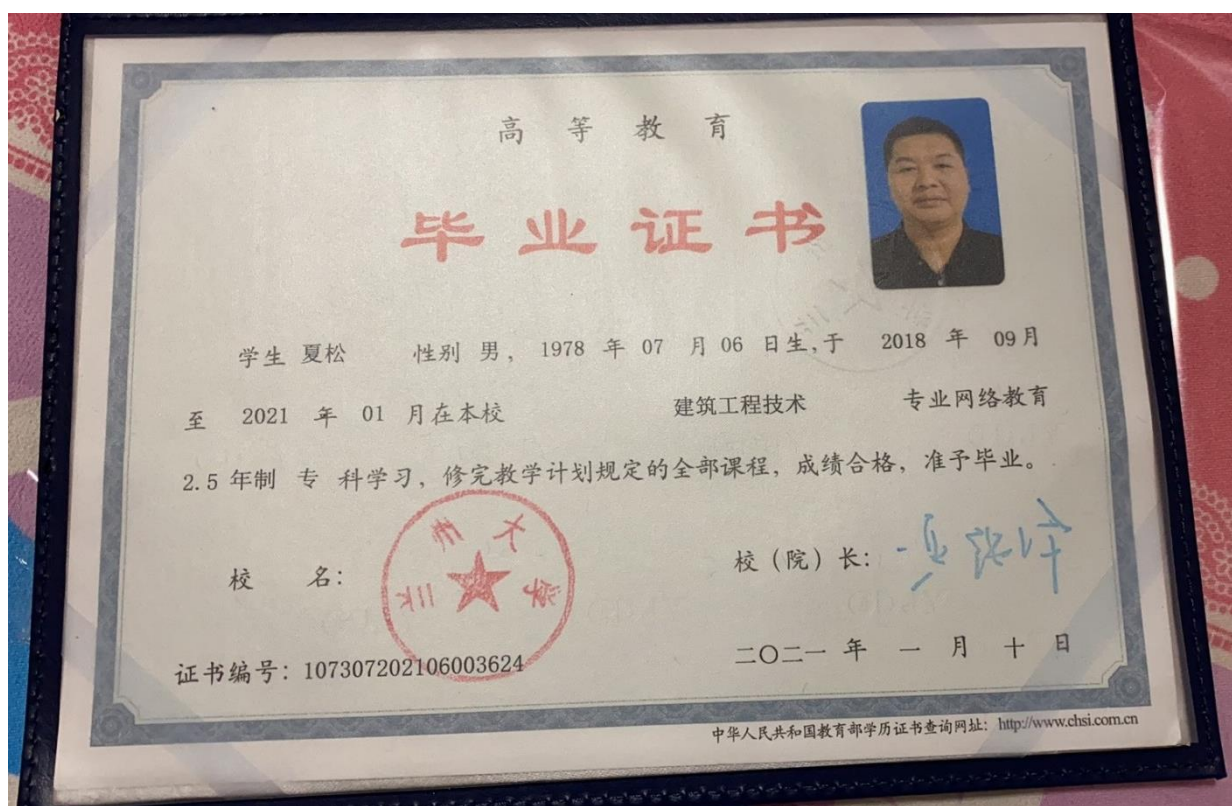 高等教育
毕业证书
学生 夏松 性别 男, 1978 年 07 月 06 日生,于 2018 年 09月
至 2021 年 01 月在本校 建筑工程技术 专业网络教育
2.5 年制 专 科学习, 修完教学计划规定的全部课程, 成绩合格, 准予毕业。
校 名:
校(院)长:
证书编号: 107307202106003624
二〇二一 年 一 月 十 日
中华人民共和国教育部学历证书查询网址: http://www.chsi.com.cn